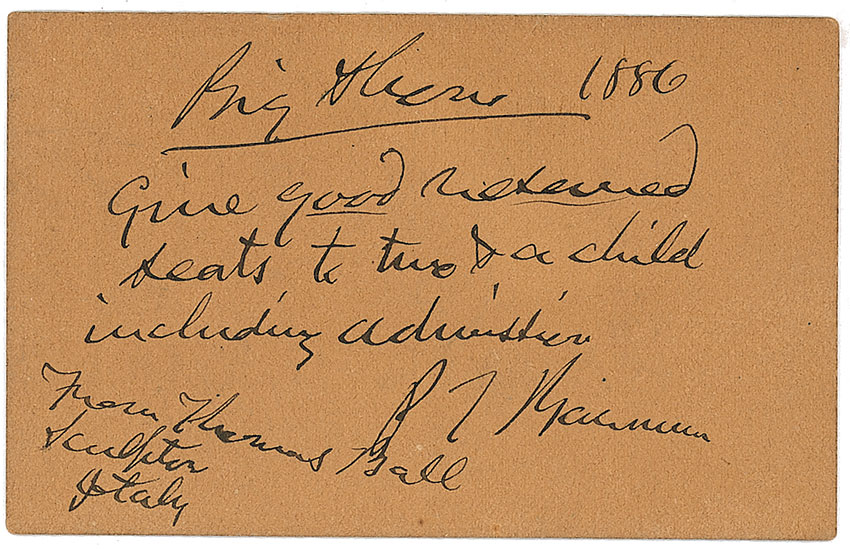 Big Show 1886
Give good reserved
seats to two & a child
including admission
P T Barnum
From Thomas Ball
Sculptor
Italy